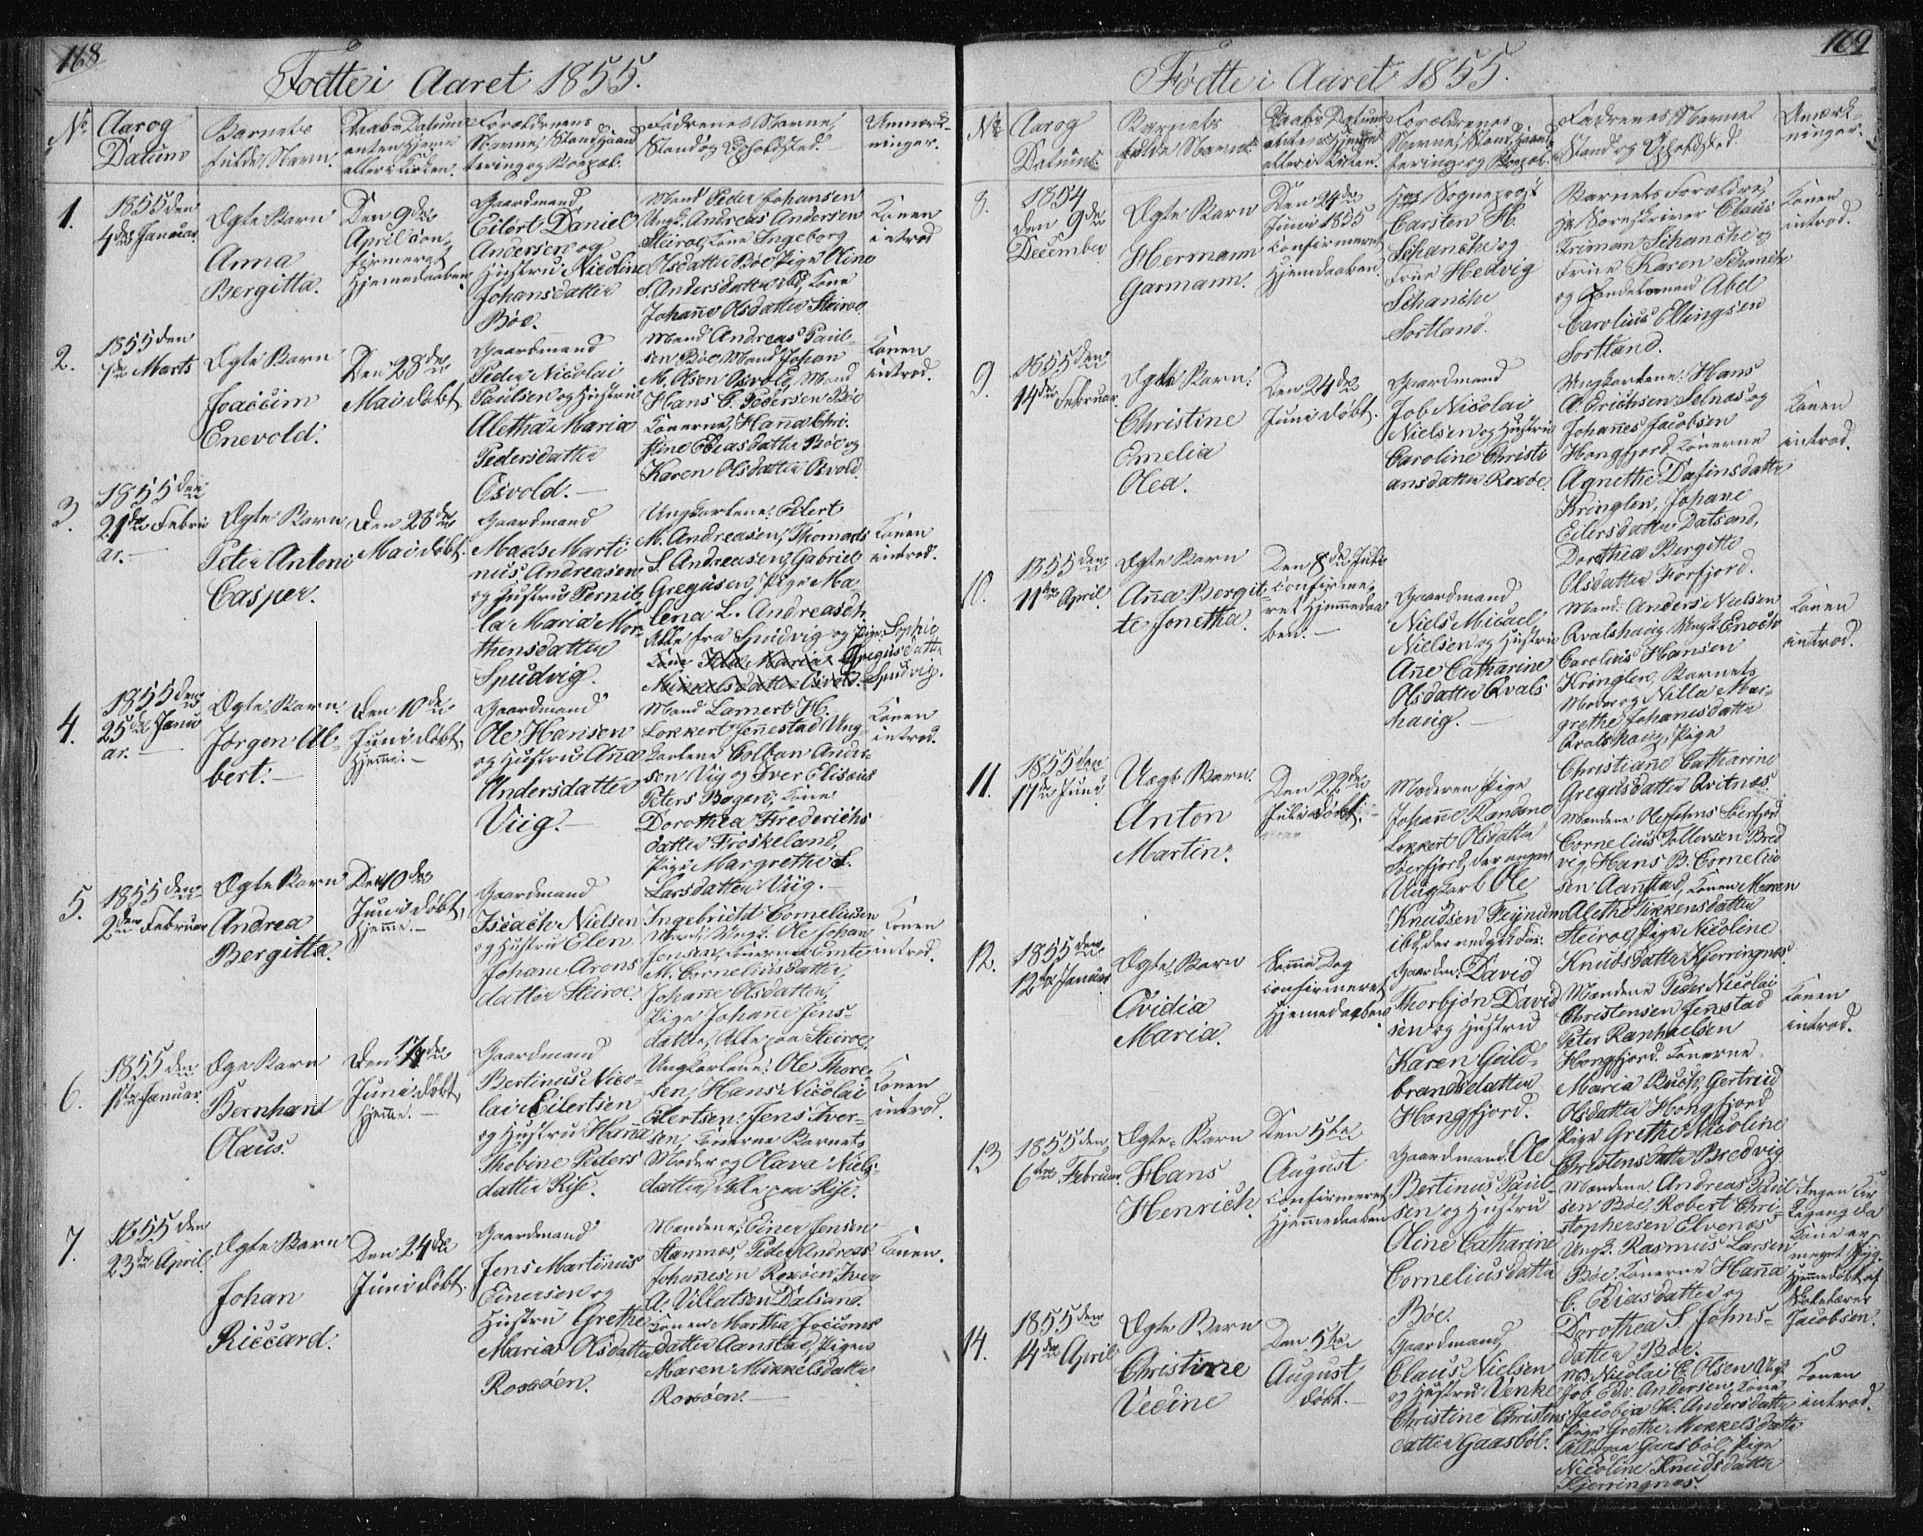 168
Fødte i Aaret 1855.
No
Aar og
Datum
Barnets
fulde Navn.
Daabs Datum
enten hjeme
eller i Kirken.
Forældrenes
Navne, Stand, Haand
tering og Boepæl.
Faddrenes Navne,
Stand og Opholdsted.
Anmærk-
ninger.
1.
1855 den
4de Januar
Ægte Barn
Anna
Bergitta.
Den 9de
April con-
firmeret
Hjemedaaben
Gaardmand
Eilert Daniel
Andersen og
Hustru Nicoline
Johansdatter
Böe.
Mand Peder Johansen
Ungk. Andreas Andersen
Steiroe, Kone Ingeborg
Olsdatter Böe Pige Oline
S. Andersdatter ibd, Kone
Johanne Olsdatter Steiroe
Konen
introd
2.
1855 den
7de Marts
Ægte Barn
Joaccim
Enevold.
Den 28de
Mai döbt
Gaardmand
Peder Nicolai
Paulsen og Hustru
Aletha Maria
Pedersdatter
Osvold.
Mand Andreas Paul-
sen Böe Mand Johan
M. Olsen Osvold, Mand
Hans C. Pedersen Böe
Konerne, Hanna Chri-
stine Ediasdatter Böe og
Karen Olsdatter Osvold
Konen
introd.
3.
1855 den
21de Febru
ar.
Ægte Barn
Peter Antoni
Casper.
Den 28de
Mai döbt.
Gaardmand
Mads Marti
nus Andreasen
og Hustru Pernil-
la Maria Mor-
thensdatter
Spudvig.
Ungkarlene: Eilert
M. Andreasen, Thomas
S. Andreasen, Gabriel
Gregusen, Pige Ma-
lena L. Andreasdtr.
Alle fra Spudvig og Pige: Sophie
Gregusdatter
Spudvig.
Konen
introd.
4.
1855 den
25de Janu
ar.
Ægte Barn.
Jörgen Al-
bert.
Den 10de
Juni döbt
hjeme.
Gaardmand
Ole Hansen
og Hustru Anna
Andersdatter
Viig.
Mand Lamert H.
Lokkert Jennestad Ung-
karlene Colban Andr-
sen Vig og Iver Elisæus
Peters Bogen, Kone
Dorothea Frederichs
datter Froskeland,
Pige Margrethe L.
Larsdatter Viig.
Konen
introd.
5.
1855 den
2den Februar
Ægte Barn
Andrea
Bergitta.
Den 10de
Juni döbt,
hjeme.
Gaardmand
Iscach Nielsen
og Hustru Elen
Johane Arons
datter Steiroe.
Ingebricht Corneliusen
Mand, Ungk. Ole Johan
Jensen, Konerne Ente
M. Corneliusdatter,
Johanne Olsdatter,
Pige Johane Jens-
datter, Alle paa Steiroe.
Konen
introd.
6.
1855 den
1ste Januar.
Ægte Barn
Bernhard
Olaus.
Den 17de
Juni döbt,
hjeme.
Gaardmand
Bertinus Nico-
lai Eilertsen
og Hustru Hanna
Thobine Peders
datter Rise.
Ungkarlene: Ole Thore-
sen, Hans Nicolai
Eilertsen. Jens Iver-
sen, Konerne Barnets
Moder og Olava Niels-
datter, Alle paa Rise.
Konen
introd.
7.
1855 den
23de April.
Ægte Barn
Johan
Riccard.
Den 24de
Juni döbt.
Gaardmand
Jens Martinus
Einersen og
Hustru Grethe
Maria Olsdatter
Roxöen.
Mandene: Einer Jensen
Stamnes, Peder Andreas
Johannesen Roxöen, Iver
A. Villatsen Dalsand.
Konen Martha Joccoms
datter Aanstad, Pigen
Maren Mikkelsdatter
Roxöen.
Konen.
169
Fødte i Aaret 1855.
No
Aar og
Datum
Barnets
fulde Navn
Daabs Datum
enten hjeme
eller i Kirken.
Forældrenes
Navne, Stand, Haand
tering og Boepæl.
Fadrenes Navne
Stand og Opholdsted.
Anmærk-
ninger.
8.
1854
den 9de
December
Ægte Barn
Hermann
Garmann.
Den 24de
Juni 1855
confirmeret
Hjemdaaben.
Hr. Sogneprest
Carsten H.
Schanche og
Frue Hedvig
Schanche
Sortland.
Barnets Forældre,
Hr. Sorenskriver Claus
Schanche og
Frue Karen Schanche
og Handelsmand Abel
Carolius Ellingsen
Sortland.
Konen
introd.
9.
1855 den
14de Februar.
Ægte Barn.
Christine
Emelia
Olea.
Den 24de
Juni döbt.
Gaardmand
Job Nicolai
Nielsen og Hustru
Caroline Christi
ansdatter Roxöe.
Ungkarlene: Hans
A. Erichsen Selnæs og
Johannes Jacobsen
Hongfjord Konerne
Agnethe Dafinsdatter
Kringlen, Johane
Eilersdatter Datsand,
Dorothea Bergitte
Olsdatter Forfjord.
Konen
introd.
10.
1855 den
11te April
Ægte Barn
Anna Bergit-
te Jonetha.
Den 8de Juli
confirme-
ret Hjemedaa
ben.
Gaardmand
Niels Micael
Nielsen og Hustru
Ane Catharine
Olsdatter Kvals
haug.
Mand: Anders Nielsen
Kvalshaug Ungk. Enoch
Carolius Hansen
Kringlen, Barnets
Moder og Nilla Mar-
grethe Johanesdatter
Kvalshaug, Pige
Christiane Catharine
Gregusdatter Kvitnæs.
Konen
introd.
11.
1855 den
17de Juni
Uægte Barn.
Anton
Martin.
Den 22de
Juli döbt.
Moderen Pige
Johanne Randine
Lokkert Olsdatter
Soerfjord, der angav
Ungkarl Ole
Knudsen Fejnum
ibd, der vedgik Far.
Mandene Ole Johns Soerfjord
Cornelius Tollevsen Bred
vig Hans B. Corneliu
sen Aanstad, Konen Maren
Alethe Fikkensdatter
Steiroe, Pige Nicoline
Knudsdatter Kjerringnæs.
12.
1855 den
12te Januar
Ægte Barn
Ovidia
Maria.
Samme Dag
confirmeret
Hjemedaaben
Gaardm: David
Thorbjön David
sen og Hustru
Karen Guld-
brandsdatter
Hongfjord.
Mandene Peder Nicolai
Christensen Jenstad
Peter Ranhaelsen
Hongfjord. Konerne
Maria Buch, Gertrud
Olsdatter Hongfjord
Pige Grethe Nicoline
Christensdatter Bredvig
Konen
introd.
13
1855 den
6te Februar.
Ægte Barn
Hans
Henrich.
Den 5te
August
confirmeret
Hjemmedaaben
Gaardmand Ole
Bertinus Paul-
sen og Hustru
Oline Catharine
Corneliusdatter
Böe.
Mandene. Andreas Paul
sen Böe, Robert Chri-
stophersen Elvenæs
Ungk. Rasmus Larsen
Böe Konerne Hanna
C. Ediasdatter og
Dorothea S. Johns-
datter Böe.
Ingen Kir
kegang da
Kone er
meget syg.
Hjemedöbt af
Skolelærer
Jacobsen.
14.
1855 den
14de April
Ægte Barn
Christine
Vecine
Den 5te
August
döbt.
Gaardmand
Claus Nielsen
og Hustru Venke
Christine Christens
datter Gaasböl.
Md. Nicolai E. Olsen Ungk.
Job Edv. Andersen, Kone
Jacobia H. Andersdatter
Pige Grethe Mikkelsdatter
Alle paa Gaasböl, Pige
Nicoline Knudsdatter
Kjerringnæs.
Konen
introd.